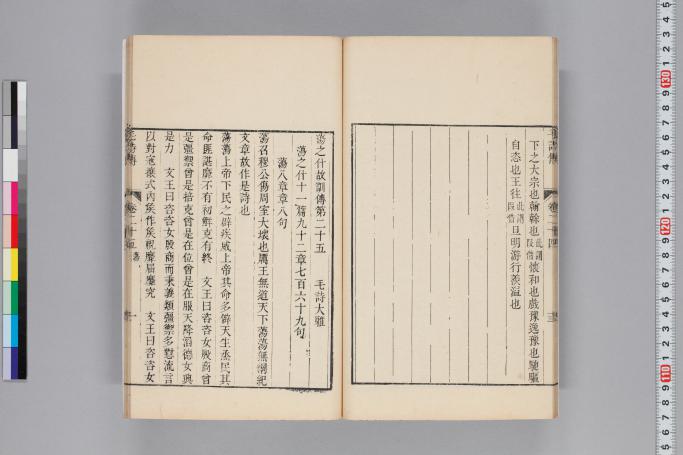 下之大宗也翰榦也此謂叚借懷和也戲豫逸豫也馳驅
自恣也王往此謂叚借旦明游行羨溢也
蕩之什故訓傳第二十五 毛詩大雅
蕩之什十一篇九十二章七百六十九句
蕩八章章八句
蕩召穆公傷周室大壞也厲王無道天下蕩蕩無綱紀
文章故作是詩也
蕩蕩上帝下民之辟疾威上帝其命多僻天生烝民其
命匪諶靡不有初鮮克有終 文王曰咨咨女殷商曾
是彊禦曾是掊克曾是在位曾是在服天降滔德女興
是力 文王曰咨咨女殷商而秉義類彊禦多懟流言
以對寇攘式內矦作矦祝靡屆靡究 文王曰咨咨女
卷二十五 蕩 一